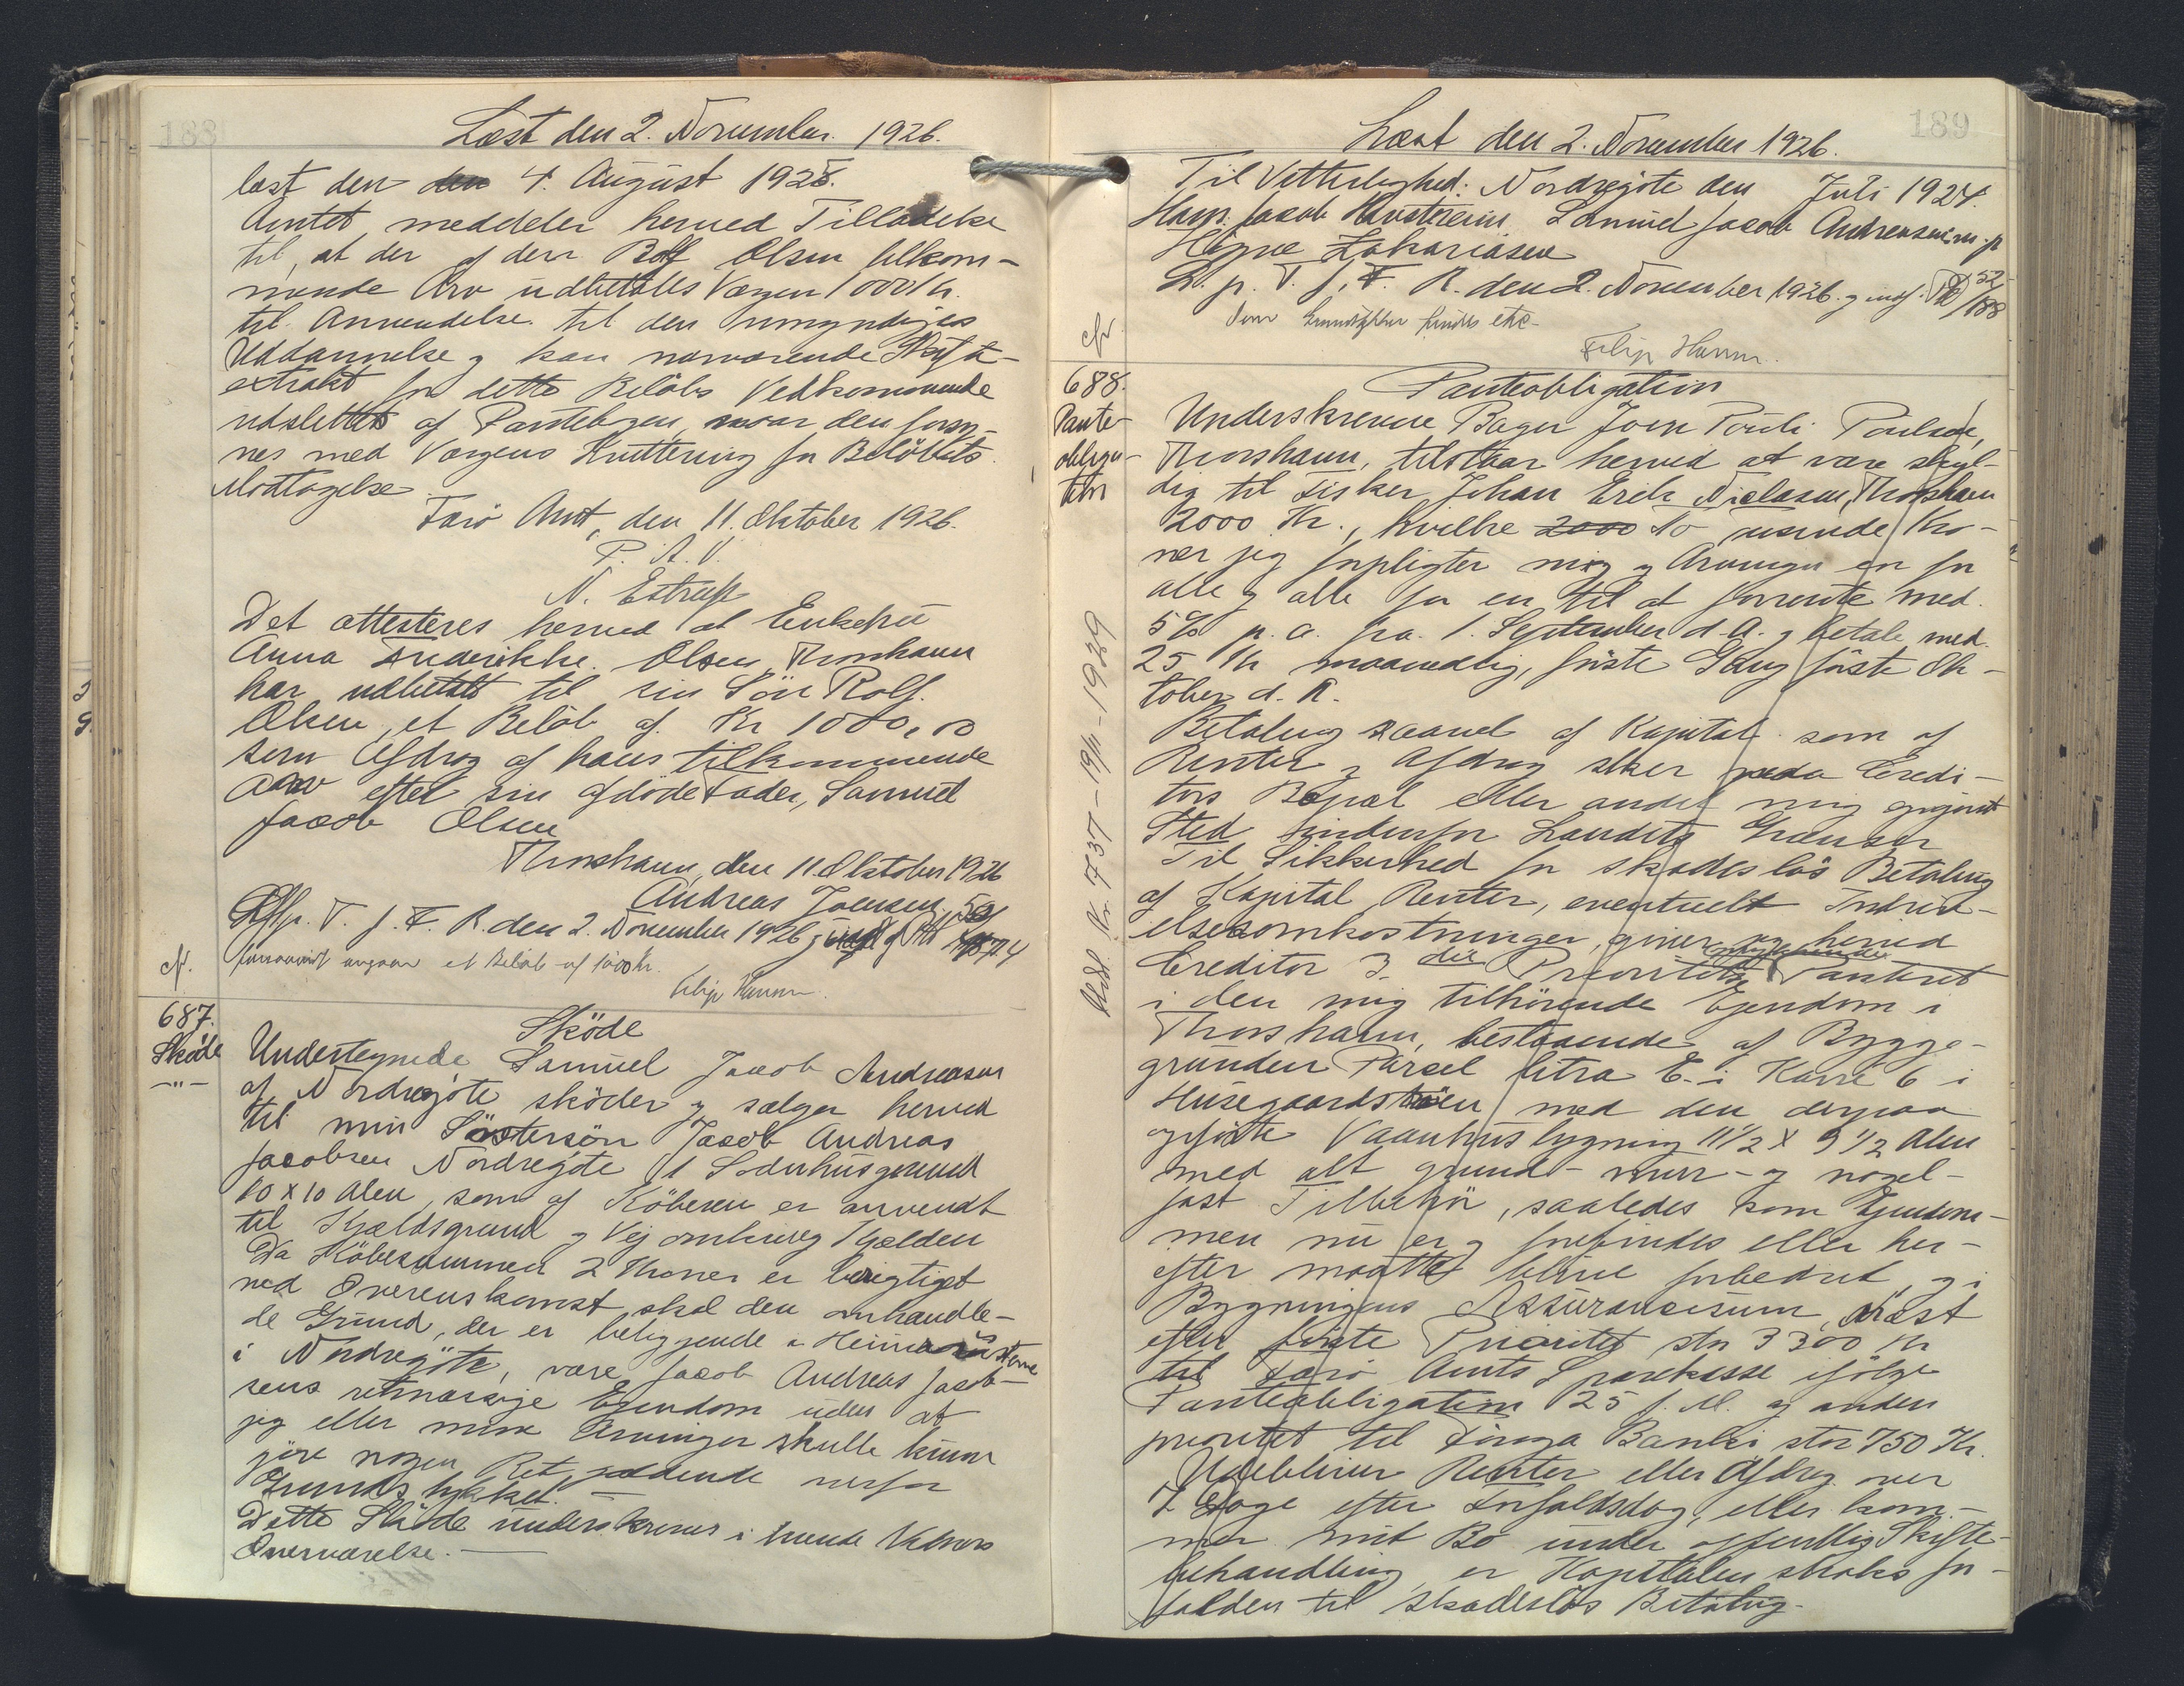 188
Læst den 2. November. 1926.
læst den den 4. August 1925.
Amtet meddeler herved Tilladelse
til, at der af den Rolf Olsen tilkom-
mende Arv udbetales Værgen 1000 Kr.
til Anvendelse til den umyndiges
Uddannelse og kan nærværende Skifte-
extrakt for dette Beløbs Vedkommende
udslettes af Pantebogen, naar den forsy-
nes med Værgens Kvittering for Beløbets
Modtagelse.
Færø Amt, den 11. Oktober 1926.
P. A. V.
N. Estrup
Det attesteres herved at Enkefru
Anna Frederikke Olsen, Thorshavn
har udbetalt til sin Sön Rolf
Olsen et Belöb af Kr 1000,00
som Afdrag af hans tilkommende
Arv efter sin afdöde Fader, Samuel
Jacob Olsen
Thorshavn, den 11. Oktober 1926
Andreas Joensen.
Aflp. T. f. F. R. den 2. November 1926
forsaavidt angaar et Beløb af 1000 Kr.
Filip Hamm.
cfr.
687.
Sköde
-"-
Sköde
Undertegnede Samuel Jacob Andreasen
af Nordregöte sköder og sælger herved
til min Söstersön Jacob Andreas
Jacobsen Nordregöte 1 Lodnhusgrund
10 x 10 Alen, som af Köberen er anvendt
til Kjældsgrund og Vej omkring Kjælden
Da Köbesummen 2 Kroner er berigtiget
ved Overenskomst skal den omhandle-
de Grund, der er beliggende i
i Nordregöte, være Jacob Andreas Jacob-
sens retmæssige Ejendom uden at
jeg eller mine Arvinger skulle kunne
göre nogen Ret gældende over for
Grundstykket. -
Dette Sköde underskrives i tvende Vidners
Overværelse. -
189
Læst den 2. November 1926.
Til Vitterlighed: Nordregöte den Juli 1924.
Hans Jacob Samuel Jacob Andreasen m. p.
Högne Zakariasen
L. p. T. f. F. R. den 2. November 1926. og indf. 52/188
Som Grundstykker findes etc-
Filip Hamm.
cfr.
688.
Pante-
obliga-
tion
Udsl. Nr. 737 - 19/11 - 1929
Panteobligation
Underskrevne Bager Joen Pouli Poulsen,
Thorshavn, tilstaar herved at være skyl-
dig til Fisker Johan Erik Niclasen, Thorshavn
2000 Kr., hvilke 2000 To tusinde Kro-
ner jeg forpligter mig og Arvinger en for
alle og alle for en til at forrente med
5% p. a. fra 1. September d. A. og betale med
25 Kr maanedlig, förste Gang förste Ok-
tober d. A.
Betaling saavel af Kapital som af
Renter og Afdrag sker paa Credi-
tors Bopæl eller andet mig opgivet
Sted indenfor Landets Grænser
Til Sikkerhed for skadeslös Betaling
af Kapital, Renter, eventuelt Inddriv-
elsesomkostninger, giver jeg herved
Creditor 3. die Prioritets oprykkende Panteret
i den mig tilhörende Ejendom i
Thorshavn, bestaaende af Bygge-
grunden Parsel litra E. i Karré 6 i
Husegaardstöen med den derpaa
opförte Vaanhusbygning 11 1/2 x 9 1/2 Alen
med alt grund- mur- og nagel-
fast Tilbehör, saaledes som Ejendom-
men nu er og forefindes eller her-
efter maatte blive forbedret, og i
Bygningens Assurancesum, Næst
efter förste Prioritet stor 3300 Kr
til Færö Amts Sparekasse ifölge
Panteobligation 25 f. M. og anden
prioritet til Föroya Banki stor 750 Kr.
Udebliver Renter eller Afdrag over
7 Dage efter Forfaldsdag, eller kom-
mer mit Bo under offentlig Skifte-
behandling, er Kapitalen straks for-
falden til skadeslös Betaling.